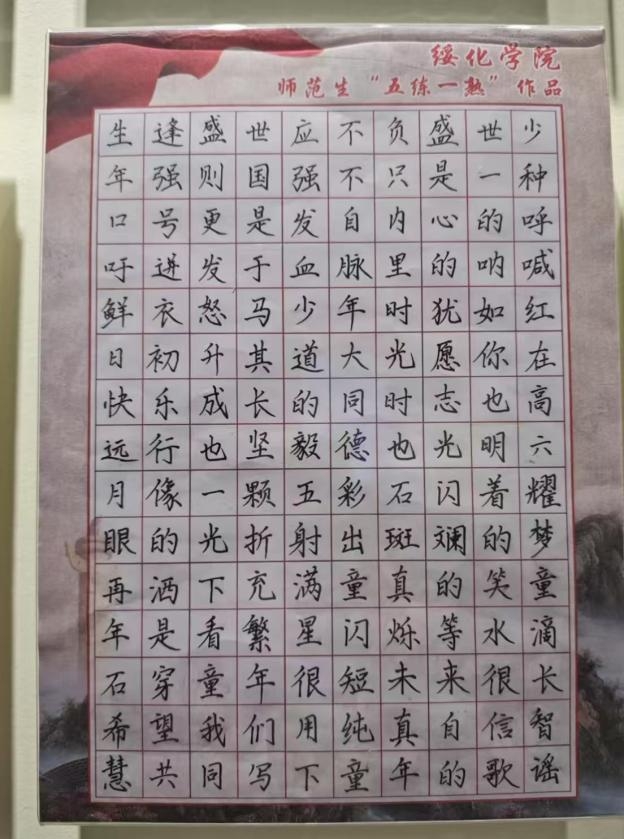 绥化学院
师范生“五练一熟”作品
生逢盛世应不负盛世少
年强则国强不只是一种
口号更是发自内心的呼
吁迸发于血脉里的呐喊
鲜衣怒马少年时犹如红
日初升其道大光愿你在
快乐成长的同时志也高
远行也坚毅德也光明六
月像一颗五彩石闪着耀
眼的光折射出斑斓的梦
再洒下充满童真的笑童
年是看繁星闪烁等水滴
石穿童年很短未来很长
希望我们用纯真自信智
慧共同写下童年的歌谣